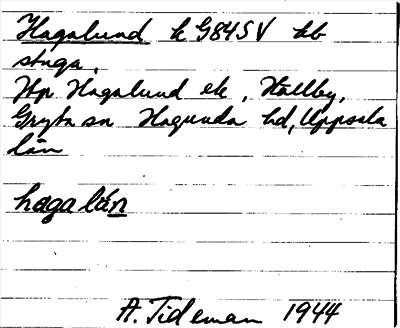 Hagalund k G84SV kb
stuga.
Hp. Hagalund ek, Hällby,
Gryta sn Hagunda hd, Uppsala
län
hagalán
A. Tideman 1944